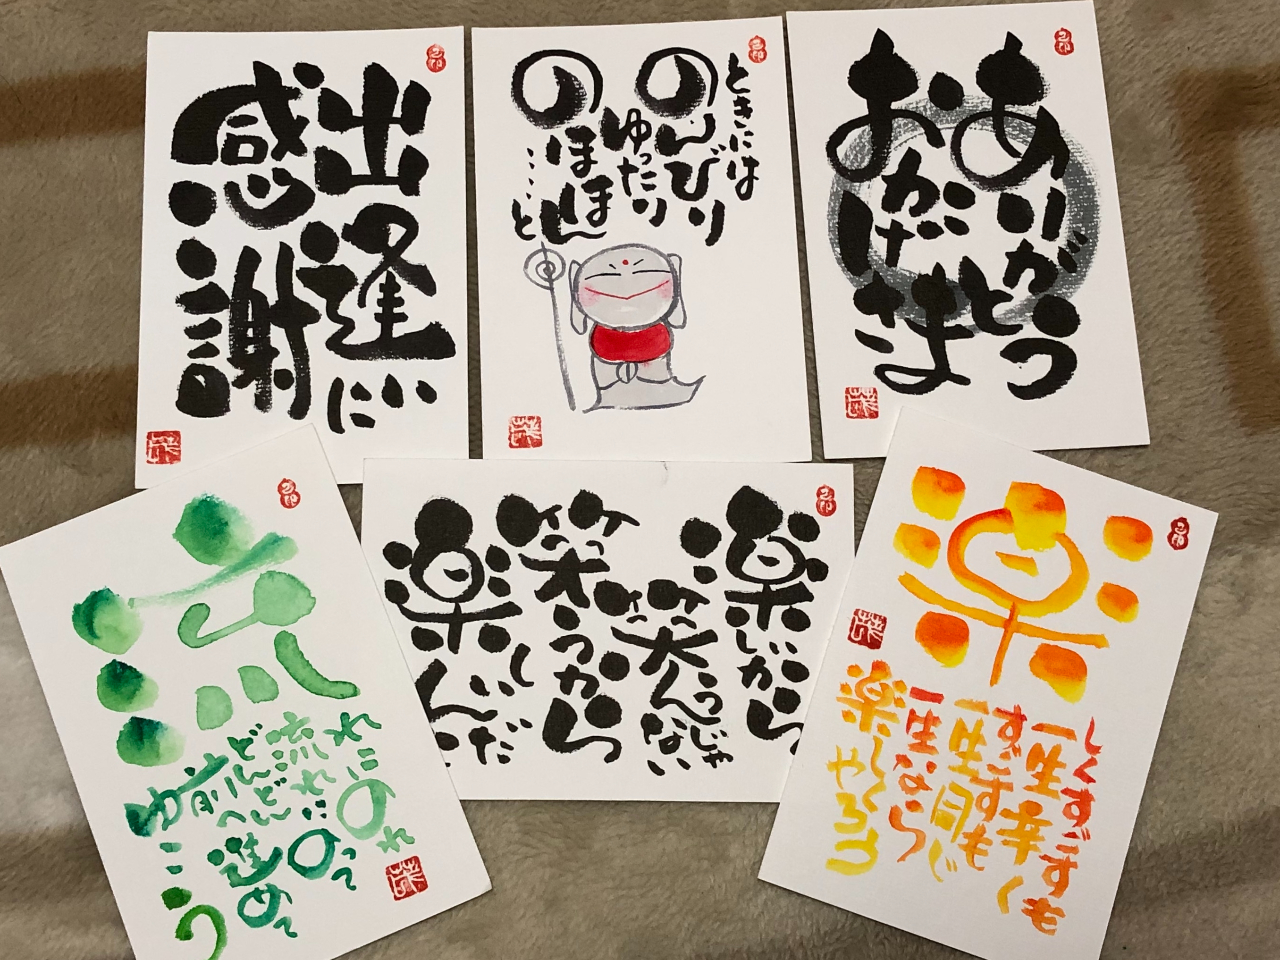 出逢いに
感謝
ときには
のんびり
ゆったり
のほほん
……と
ありがとう
おかげさま
流
れにのれ
流れにのって
どんどん
前へ進めて
ゆこう
楽しいから
笑うんじゃない
笑うから
楽しいんだ
楽
しくすごすも
一生辛く
すごすも
一生同じ
一生なら
楽しくやろう